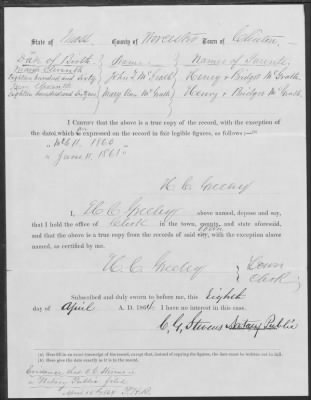 State of Mass County of Worcester Town of Clinton
Date of Birth Name Names of Parents
March Eleventh
Eighteen hundred and Sixty John F. McGrath Henry & Bridget McGrath
June Eleventh
Eighteen hundred and Sixty one Mary Ann McGrath Henry & Bridget McGrath
I CERTIFY that the above is a true copy of the record, with the exception
of the dates, which are expressed on the record in fair legible figures, as follows:—(b)
" Mch 11. 1860
" June 11. 1861"
H. C. Greeley
I, H. C. Greeley above named, depose and say,
that I hold the office of Clerk in the town, county, and state aforesaid,
and that the above is a true copy from the records of said city, town with the exception above
named, as certified by me.
H. C. Greeley Town Clerk
Subscribed and duly sworn to before me, this Eighth
day of April A. D. 1864 I have no interest in this case.
C. G. Stevens Notary Public
(a) Here fill in an exact transcript of the record, except that, instead of copying the figures, the date must be written out in full.
(b) Here give the date exactly as it is in the record.
Evidence that C. G. Stevens is
a Notary Public filed
April 1864